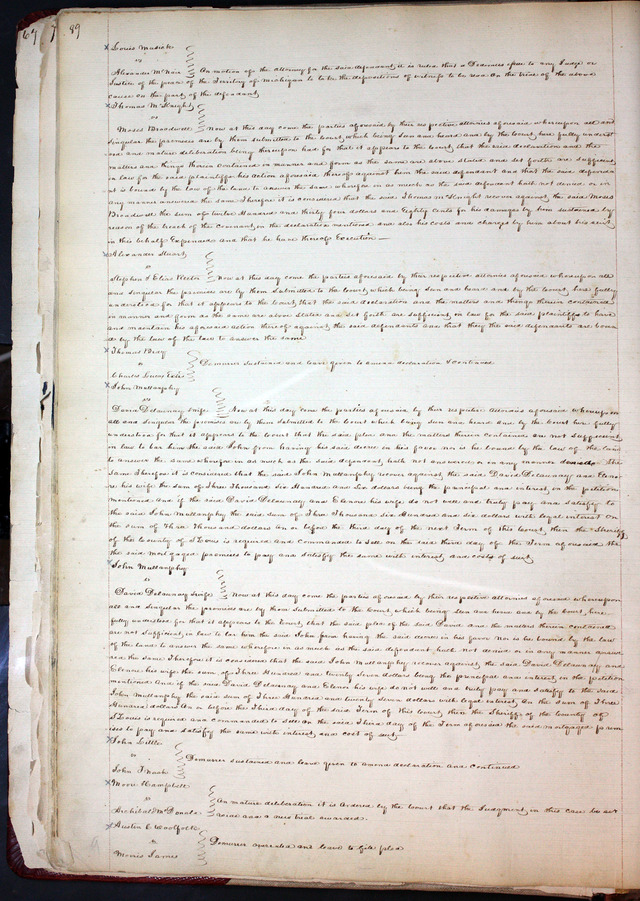 89
Louis Musick
vs
Alexander McNair On motion of the attorney for the said defendant it is ruled that a Dedimus issue to any Judge or
Justice of the peace in the Territory of Michigan to take the depositions of witness to be read on the trial of the above
cause on the part of the defendant
Thomas McKnight
vs
Moses Broadwell Now at this day come the parties aforesaid by their respective attornies aforesaid whereupon all and
singular the premises are by them submitted to the court, which being seen and heard and by the Court here fully underst
ood and mature deliberation being thereupon had for that it appears to the court, that the said declaration and the
matters and things therein contained in manner and form as the same are above stated and set forth are sufficient
in law for the said plaintiff his action aforesaid thereof against him the said defendant and that the said defendan
t is bound by the law of the land to answer the same wherefore in as much as the said defendant hath not denied or in
any manner answered the same Therefore it is considered that the said Thomas McKnight recover against the said Moses
Broadwell the sum of Hundred and thirty four dollars and Eighty cents for his damages by him sustained by
reason of the breach of the Covenant, in the declaration mentioned and also his costs and charges by him about his suit
in this behalf Expended and that he have thereof Execution
Alexander Stuart
vs
Stephen & Elias Rector Now at this day come the parties aforesaid by their respective attornies aforesaid whereupon all
and singular the premises are by them submitted to the Court, which being seen and heard and by the Court, here fully
understood for that it appears to the Court, that the said declaration and the matters and things therein contained
in manner and form as the same are above stated and set forth are sufficient in law for the said plaintiff to have
and maintain his aforesaid action thereof against the said defendants and that they the said defendants are boun
d by the law of the land to answer the same
Thomas
vs Demurrer sustained and leave given to amend declaration & continued
Charles Lucas
John Mullanphy
vs
David Delaunay & wife Now at this day come the parties aforesaid by their respective attornies aforesaid whereupon
all and singular the premises are by them submitted to the court which being seen and heard and by the Court here fully
understood for that it appears to the Court that the said plea and the matters therein contained are not sufficient
in law to bar him the said John from having his said decree in his favor nor is he bound by the law of the land
to answer the same wherefore in as much as the said defendant, hath not answered or in any manner denied the
same Therefore it is considered that the said John Mullanphy recover against, the said David Delaunay and Eleno
re his wife the sum of Three Thousand six Hundred and six dollars being the principal and interest, in the petition
mentioned and if the said David Delaunay and Elenore his wife do not well and truly pay and satisfy to
the said John Mullanphy the said sum of Three Thousand six Hundred and six dollars with legal interest on
the sum of Three Thousand dollars on or before the third day of the next Term of this Court, then the Sheriff
of the County of St Louis is required and commanded to sell on the said third day of the Term aforesaid the
the said mortgaged premises to pay and satisfy the same with interest and costs of suit
John Mullanphy
vs
David Delaunay & wife Now at this day come the parties aforesaid by their respective attornies aforesaid whereupon
all and singular the premises are by them submitted to the Court, which being seen and heard and by the Court, here
fully understood for that it appears to the Court, that the said plea of the said David and the matters therein contained
are not sufficient in law to bar him the said John from having the said decree in his favor nor is he bound by the law
of the land to answer the same wherefore in as much as the said defendant hath not denied or in any manner answer
ed the same Therefore it is considered that the said John Mullanphy recover against, the said David Delaunay and
Elenore his wife the sum of Three Hundred and twenty seven dollars being the principal and interest in the petition
mentioned and if the said David Delaunay and Elenore his wife do not well and truly pay and satisfy to the said
John Mullanphy the said sum of Three Hundred and twenty seven dollars with legal interest, on the sum of Three
Hundred dollars on or before the third day of the said Term of this Court, then the Sheriff of the County of
St Louis is required and commanded to sell on the said Third day of the Term aforesaid the said mortgaged prem
ises to pay and satisfy the same with interest and cost of suit
John Little
vs Demurrer sustained and leave given to amend declaration and continued
John
Moore Campbell
vs On mature deliberation it is ordered by the Court that the Judgment in this case be set
Archibald McDonald aside and a new trial awarded
Austin E Woolfolk
vs Demurrer overruled and leave to file plea
Morris James